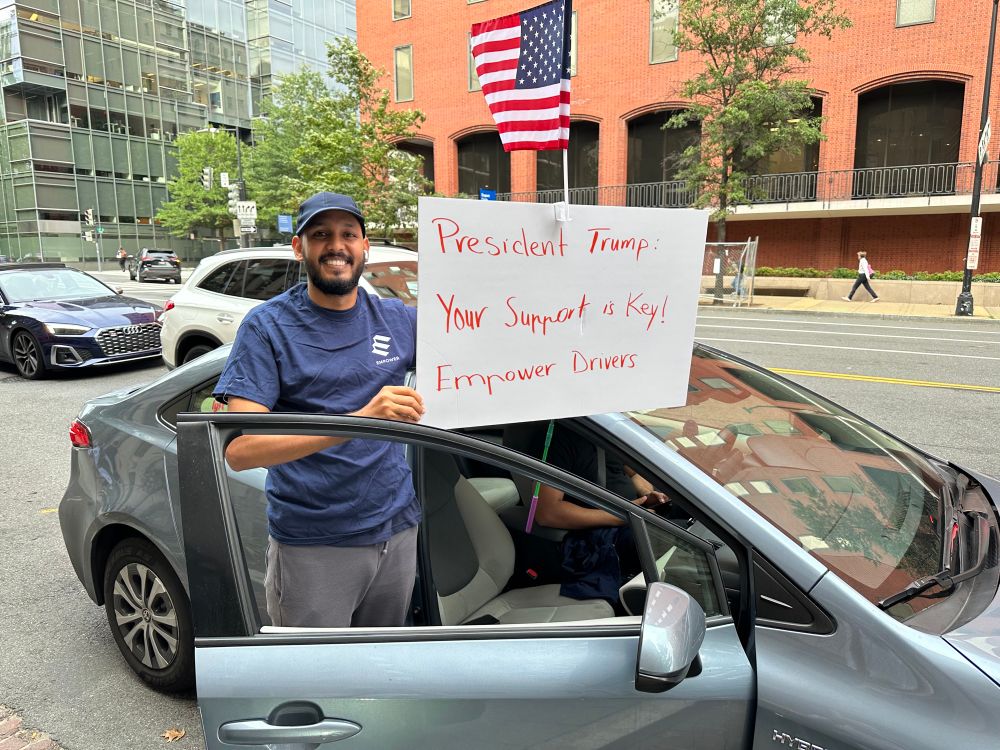 President Trump:
Your Support is Key!
Empower Drivers
EMPOWER